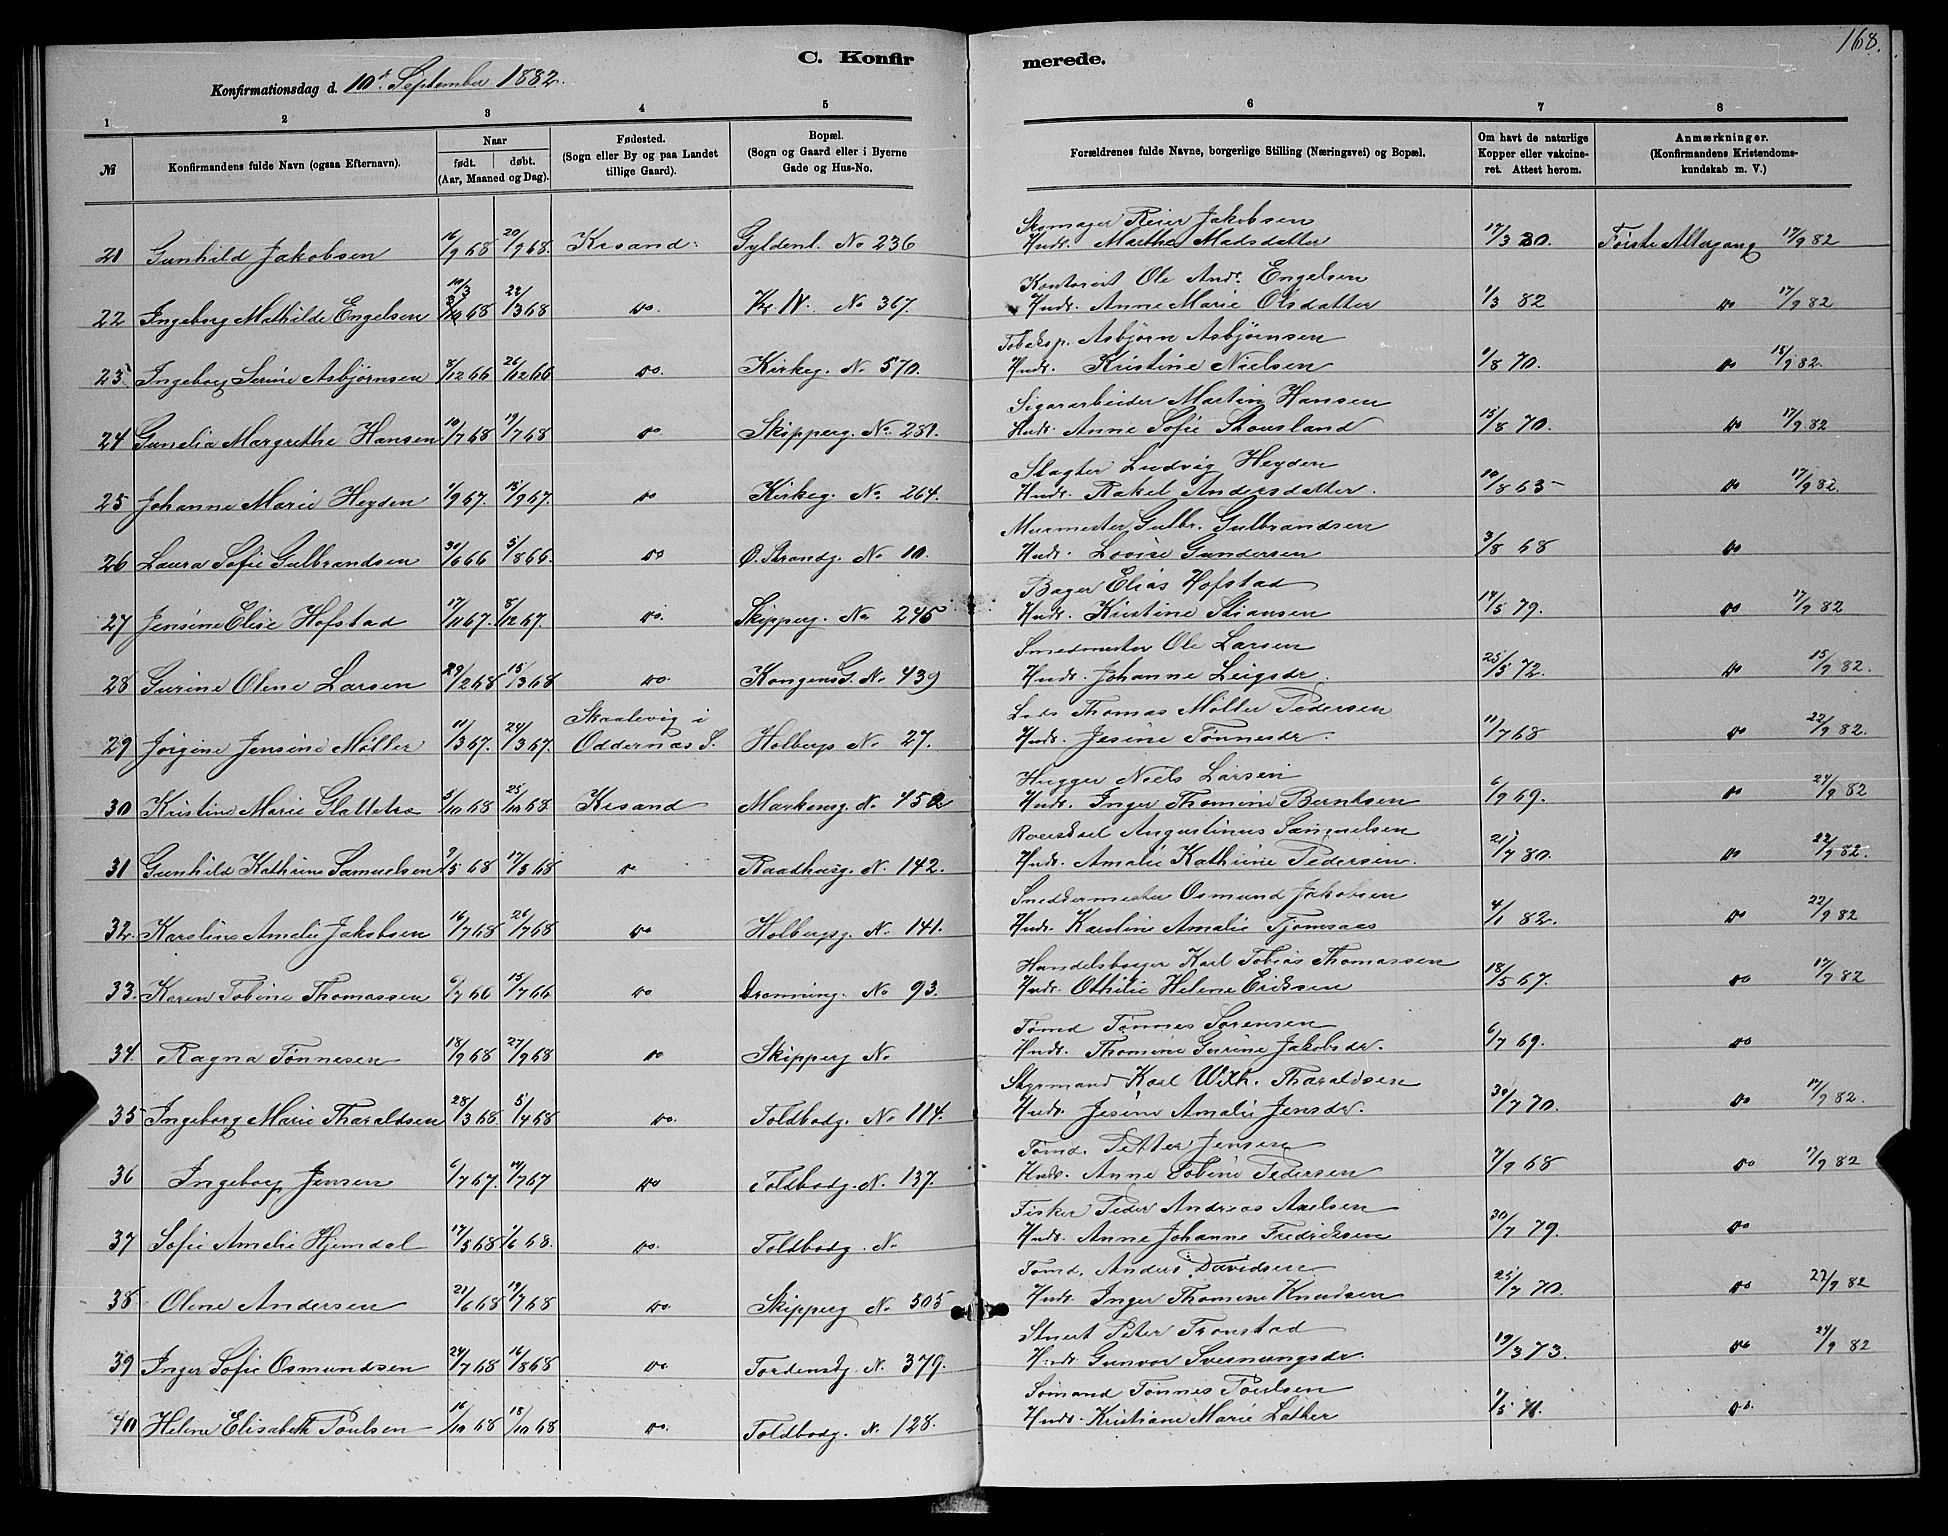 168.
C. Konfirmerede.
Konfirmationsdag d. 10d September 1882.
1 2 3 4 5 6 7 8
№ Konfirmandens fulde Navn (ogsaa Efternavn). Naar født. døbt. (Aar, Maaned og Dag). Fødested. (Sogn eller By og paa Landet tillige Gaard). Bopæl. (Sogn og Gaard eller i Byerne Gade og Hus-No. Forældrenes fulde Navne, borgerlige Stilling (Næringsvei) og Bopæl. Om havt de naturlige Kopper eller vakcineret. Attest herom. Anmærkninger. (Konfirmandens Kristendomskundskab m. V.)
Skomager Reier Jakobsen
21 Gunhild Jakobsen 16/9 68 20/9 68. Kr.sand. Gyldenl. No 236 Hustr. Marthe Madsdatter 17/3 80. Første Altergang 17/9 82
Kontorist Ole Andr. Engelsen
22 Ingeborg Mathilde Engelsen 10/3 68 22/3 68 do. Kr. N. No 367. Hustr. Anne Marie Olsdatter 1/3 82 do 17/9 82
Tobaksp. Asbjørn Asbjørnsen
23. Ingeborg Serine Asbjørnsen 8/12 66 26/12 66 do. Kirkeg. No 570. Hustr. Kristine Nielsen 1/8 70. do 15/9 82.
Sigararbeider Martin Hansen
24 Gunelia Margrethe Hansen 10/7 68 19/7 68 do Skipperg. No. 281. Hustr. Anne Sofie Stousland 15/8 70. do 17/9 82
Slagter Ludvig Heyden
25 Johanne Marie Heyden 1/9 67. 15/9 67. do Kirkeg. No. 264. Hustr. Rakel Andersdatter. 10/8 65 do 17/9 82.
Murmester Gulbr. Gulbrandsen
26 Laura Sofie Gulbrandsen 30/6 66 5/8 66. do Ø. Strandg. No 10. Hustr. Lovise Gundersen 3/8 68 do
Bager Elias Hofstad
27 Jensine Elise Hofstad 17/11 67. 8/12 67. do. Skipperg. No 245 Hustr. Kristine Stiansen 14/5 79. do 17/9 82
Smedmester Ole Larsen
28 Gurine Olene Larsen 29/2 68 15/3 68 do. Kongens G. No 439 Hustr. Johanne Leigsdr. 25/5 72. do 15/9 82.
Skaalevig i Lods Thomas Møller Pedersen
29 Jørgine Jensine Møller 11/3 67. 24/3 67. Oddernæs S. Holbergs No 27. Hustr. Jesine Tønnesdr. 11/7 68 do 22/9 82.
Hugger Niels Larsen
30 Kristine Marie Slattetra 5/10 68 25/10 68. Kr.sand Markensg. No 452 Hustr. Inger Thomine Berntsen 6/9 69. do 24/9 82
Augustinus Samuelsen
31 Gunhild Kathrine Samuelsen 7/5 68 17/5 68 do Raadhusg. No. 142. Hustr. Amalie Kathrine Pedersen. 21/7 80. do 22/9 82.
Sneddermester Osmund Jakobsen
32. Karoline Amalie Jakobsen 16/7 68 26/7 68 do Holbergsg. No. 141. Hustr. Karoline Amalie Tjomsaas 4/1 82. do 22/9 82
Handelsborger Karl Tobias Thomassen
33. Karen Tobine Thomassen 6/7 66 15/7 66 do Dronning. No 93. Hustr. Othilie Helene Eriksen 18/5 67. do 17/9 82
Tømd Tønnes Sørensen
34. Ragna Tønnesen 18/9 68 27/9 68 do Skipperg No Hustr. Thomine Gurine Jakobsdr. 6/7 69. do
Styrmand Karl Wilh. Tharaldsen
35 Ingeborg Marie Tharaldsen 28/3 68 5/4 68 do. Toldbodg. No 114. Hustr. Jesine Amalie Jensdr. 30/7 70. do 17/9 82.
Tømd. Petter Jensen
36 Ingeborg Jensen 6/7 67. 14/7 67 do Toldbodg. No. 137. Hustr. Anne Tobine Pedersen 7/9 68 do 17/9 82
Fisker Peder Andreas Axelsen
37 Sofie Amalie Hjemdal 17/5 68 1/6 68. do. Toldbodg. No Hustr. Anne Johanne Fredriksen 30/7 79. do
Tømd. Anders Davidsen
38 Olene Andersen 21/6 68 19/7 68 do. Skipperg No 505 Hustr. Inger Thomine Knudsen 25/7 70. do 22/9 82
Stuert Peter Tronstad
39 Inger Sofie Osmundsen 24/7 68 16/8 68 do. Tordenskg. No. 379. Hustr. Gunvor Sveinungsdr. 19/3 73. do 24/9 82
Sømand Tønnes Poulsen
40 Helene Elisabeth Poulsen 16/10 68 18/10 68 do. Toldbodg. No. 128. Hustr. Kristiane Marie Lather 1/5 71. do.